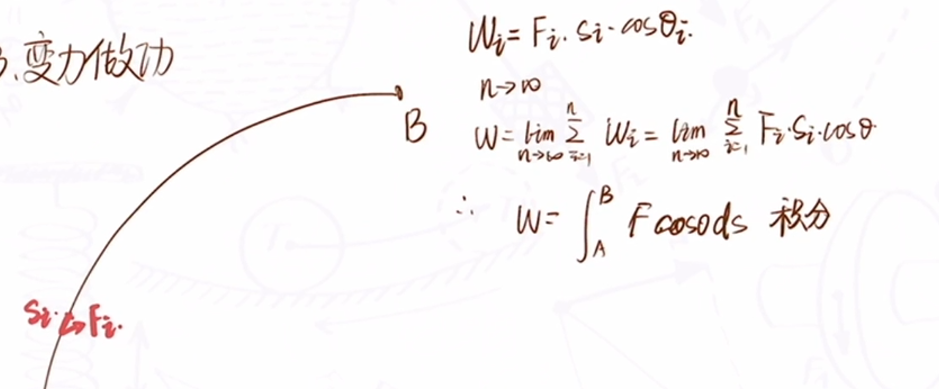 3.变力做功
Wi=Fi·Si·cosθi.
n→∞
B
W=lim n→∞ Σ i=1 n Wi=lim n→∞ Σ i=1 n Fi·Si·cosθ
∴ W=∫ A B Fcosθds 积分
Si Fi.